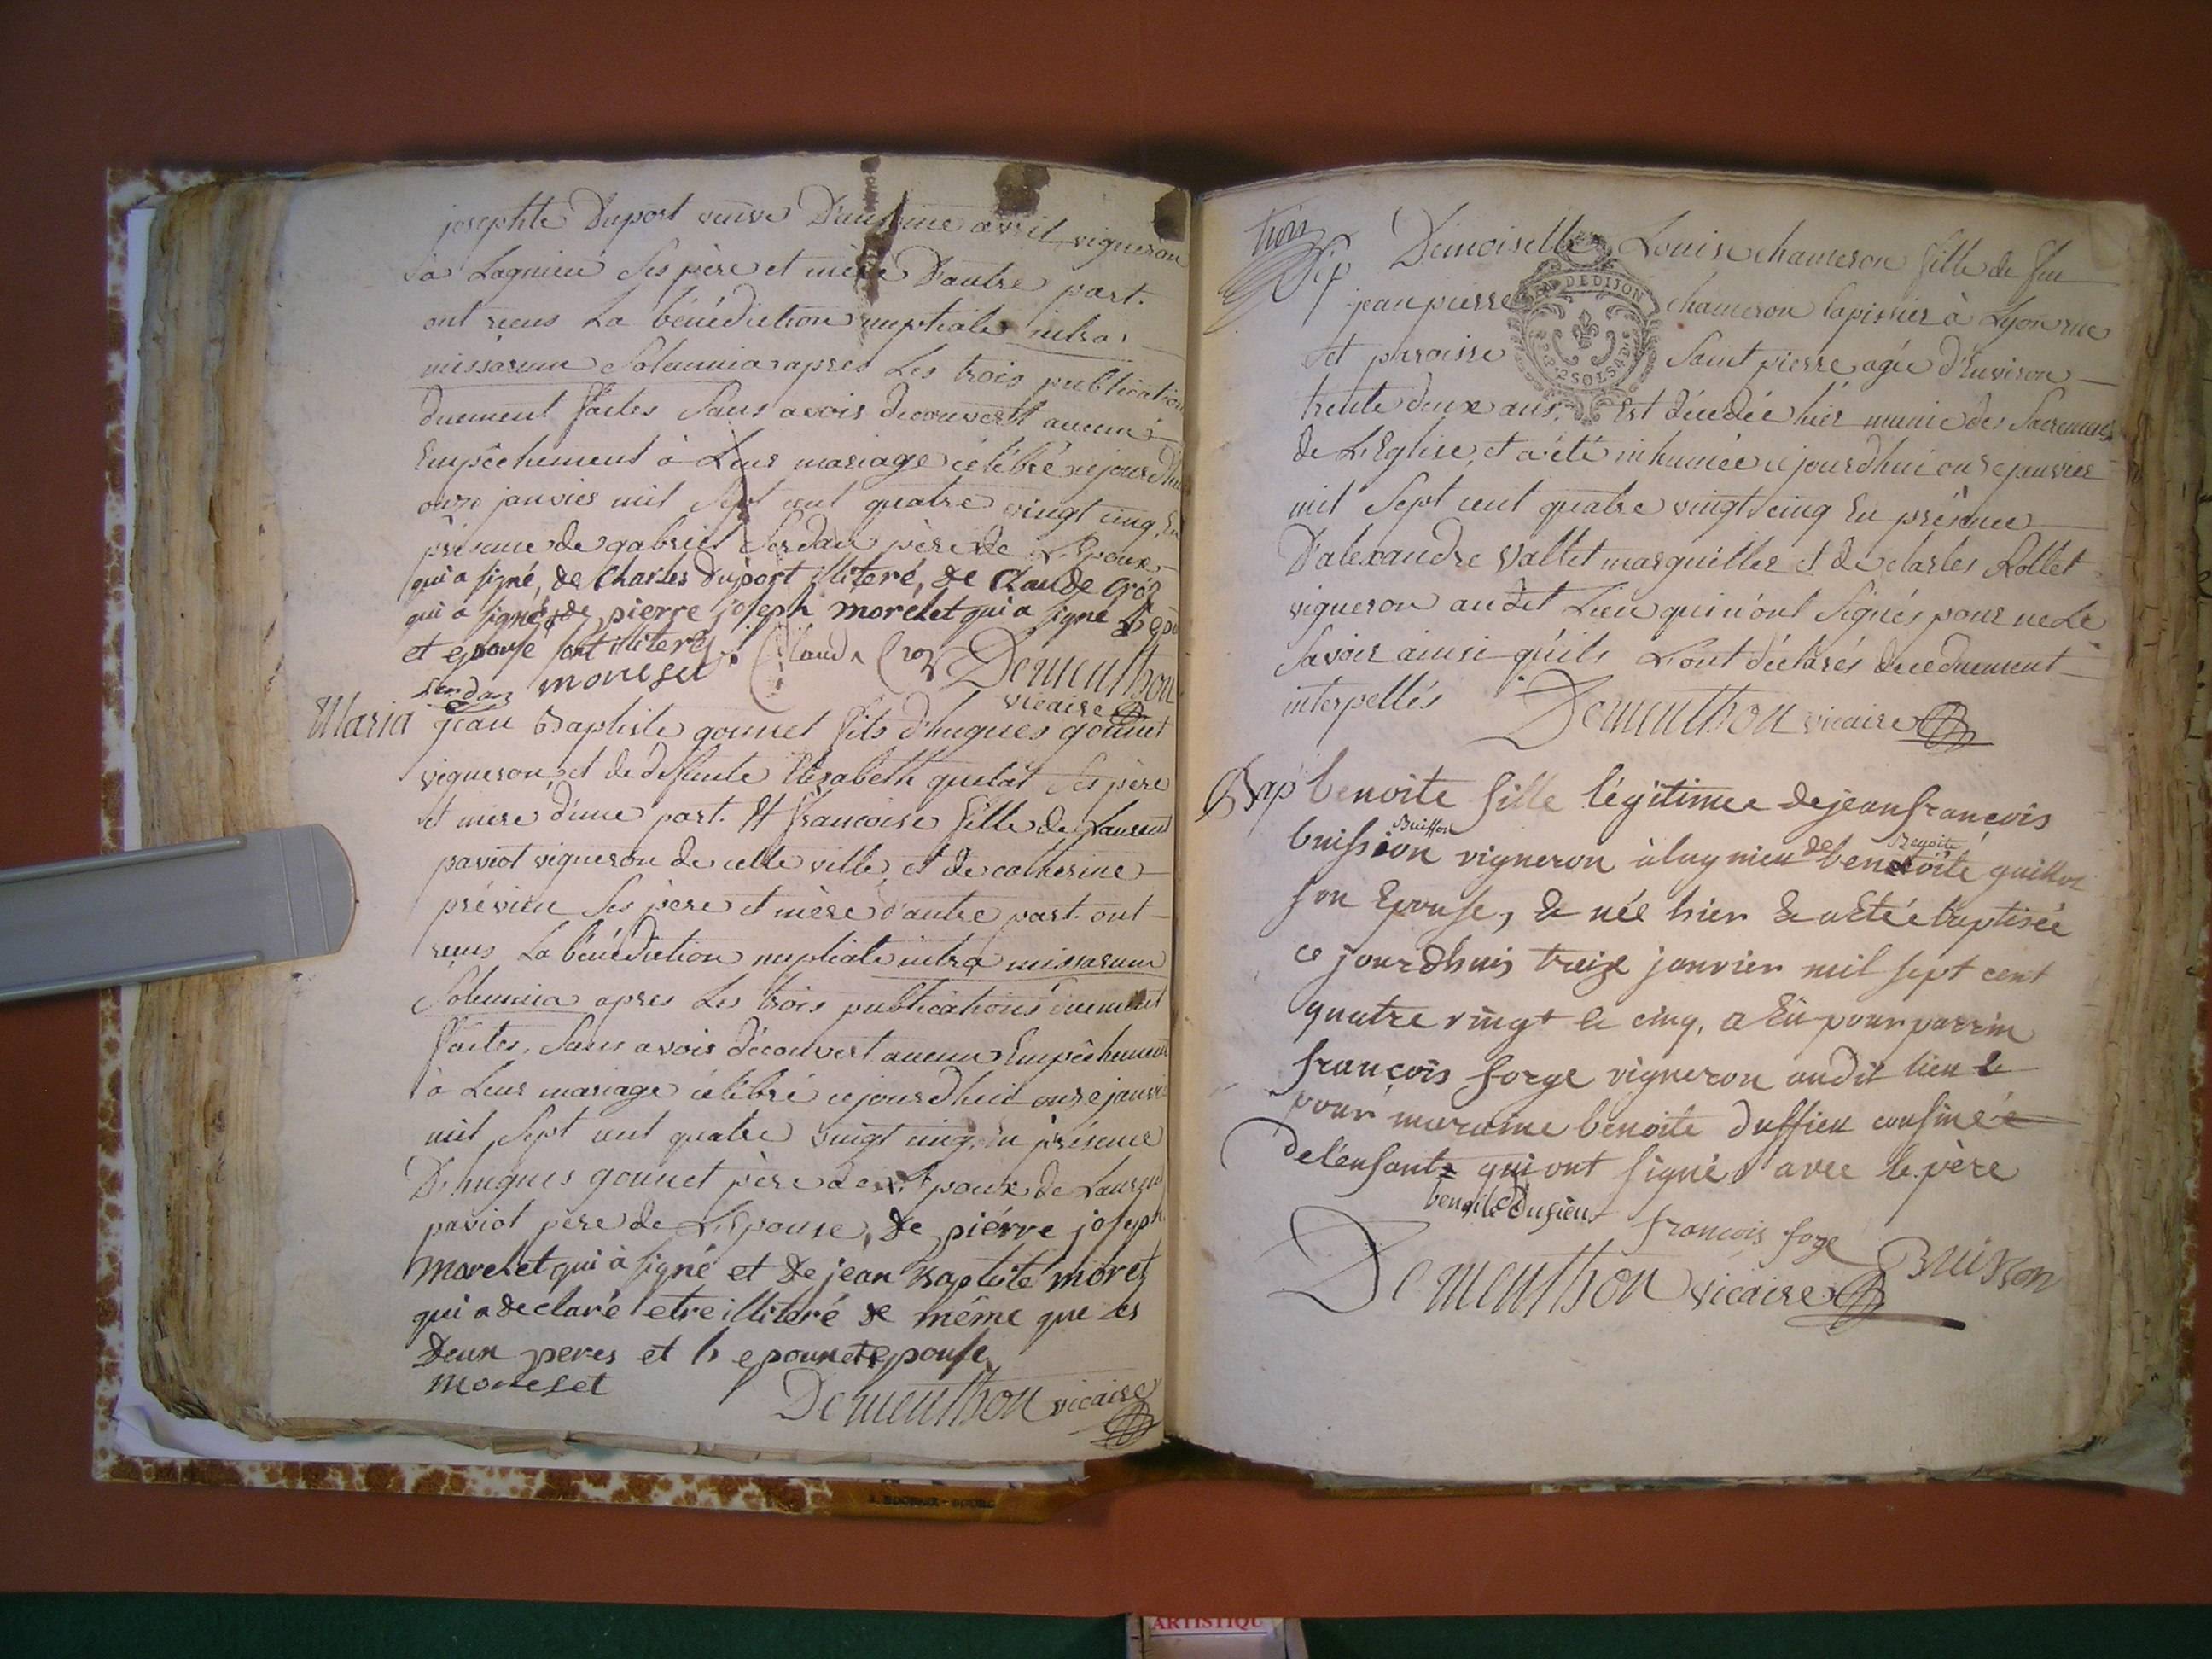 josephte Duport veuve D'antoine avril vigneron
à Lagnieu ses père et mère D'autre part.
ont reçus La bénédiction nuptiale intra
missarum Solemnia apres Les trois publication
duement faites Sans avoir decouvert aucun
Empêchement à Leur mariage célébré cejourdhui
onze janvier mil Sept cent quatre vingt cinq En
présence de gabriel père de L'Epoux
qui a signé, de Charles Duport illiteré, de Claude Croz
qui a signé, & de pierre joseph morchet qui a signé L'epo
et epouse sont illiteres. Claude Croz Dementhon
morelet vicaire
Maria jean Baptiste gonnet fils d'hugues gonnet
vigneron, et de deffunte Elisabeth quelat Ses père
et mère d'une part. Et francoise fille de Laurent
paviot vigneron de cette ville, et de catherine
prévieu Ses père et mère d'autre part. ont
reçus La bénédiction nuptiale intra missarum
Solemnia apres Les trois publications duement
faites, Sans avoir découvert aucun Empêchement
à Leur mariage célébré cejourdhui onze janvier
mil Sept cent quatre vingt cinq, En présence
D'hugues gonnet père de L'Epoux de Laurent
paviot père de L'Epouse, de piérre joseph
Morelet qui à signé et de jean Baptiste morez
qui a declaré etre illiteré de même que les
Deux peres et les epoux et epouse
morelet Dementhon vicaire
trois
Sep Demoiselle Louise chameron fille de feu
jean pierre chameron tapissier à Lyon rue
DE DIJON
et paroisse Saint pierre agée d'Environ
trente deux ans, Est décédée hier munie des Sacremens
de L'Eglise, et a été inhumée cejourdhui onze janvier
mil Sept cent quatre vingt cinq En présence
D'alexandre Vallet marguiller et de charles Rollet
vigneron audit Lieu qui n'ont Signés pour ne Le
Savoir ainsi qu'ils L'ont déclarés de ce duement
interpellés Dementhon vicaire
Bap benoite fille légitimee de jean francois
Buisson Benoite
buission vigneron à lagnieu de benoite guillot
son Epouse, & née hier & a Eté baptisée
ce jourdhuis treize janvier mil sept cent
quatre vingt & cinq, a Eu pour parrin
françois forge vigneron audit lieu &
pour marraine benoite duffieu cousine
de l'enfant qui ont signés avec le père
benoite Dusieu francois forge
Dementhon vicaire Buisson
ARTISTIQU